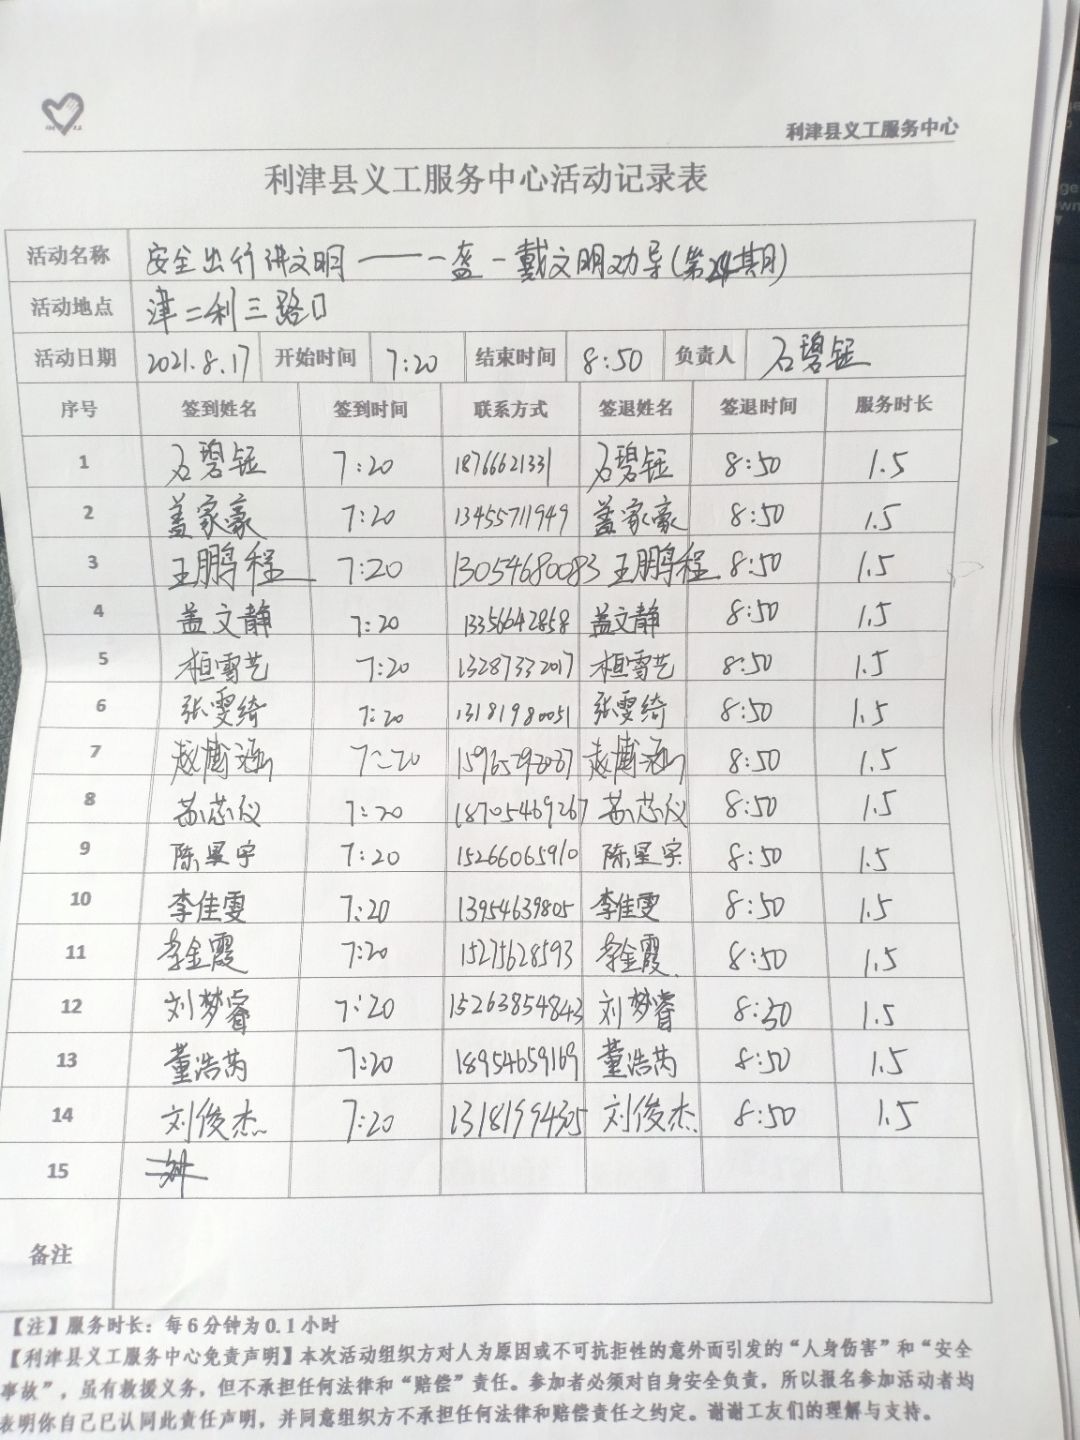 利津县义工服务中心
利津县义工服务中心活动记录表
活动名称 安全出行讲文明——一盔一戴文明劝导(第24期)
活动地点 津二利三路口
活动日期 2021.8.17 开始时间 7:20 结束时间 8:50 负责人 石碧钰
序号 签到姓名 签到时间 联系方式 签退姓名 签退时间 服务时长
1 石碧钰 7:20 18766621331 石碧钰 8:50 1.5
2 盖家豪 7:20 13455711949 盖家豪 8:50 1.5
3 王鹏程 7:20 13054680083 王鹏程 8:50 1.5
4 盖文静 7:20 13356642858 盖文静 8:50 1.5
5 桓雪艺 7:20 13287332017 桓雪艺 8:50 1.5
6 张雯绮 7:20 13181980051 张雯绮 8:50 1.5
7 赵博涵 7:20 赵博涵 8:50 1.5
8 苏芯仪 7:20 18705469267 苏芯仪 8:50 1.5
9 陈星宇 7:20 15266065910 陈星宇 8:50 1.5
10 李佳雯 7:20 13954639805 李佳雯 8:50 1.5
11 李金霞 7:20 15275628593 李金霞 8:50 1.5
12 刘梦睿 7:20 15263854843 刘梦睿 8:50 1.5
13 董浩芮 7:20 18954659169 董浩芮 8:50 1.5
14 刘俊杰 7:20 13181994305 刘俊杰 8:50 1.5
15
备注
【注】服务时长：每6分钟为0.1小时
【利津县义工服务中心免责声明】本次活动组织方对人为原因或不可抗拒性的意外而引发的“人身伤害”和“安全
事故”，虽有救援义务，但不承担任何法律和“赔偿”责任。参加者必须对自身安全负责，所以报名参加活动者均
表明你自己已认同此责任声明，并同意组织方不承担任何法律和赔偿责任之约定。谢谢工友们的理解与支持。